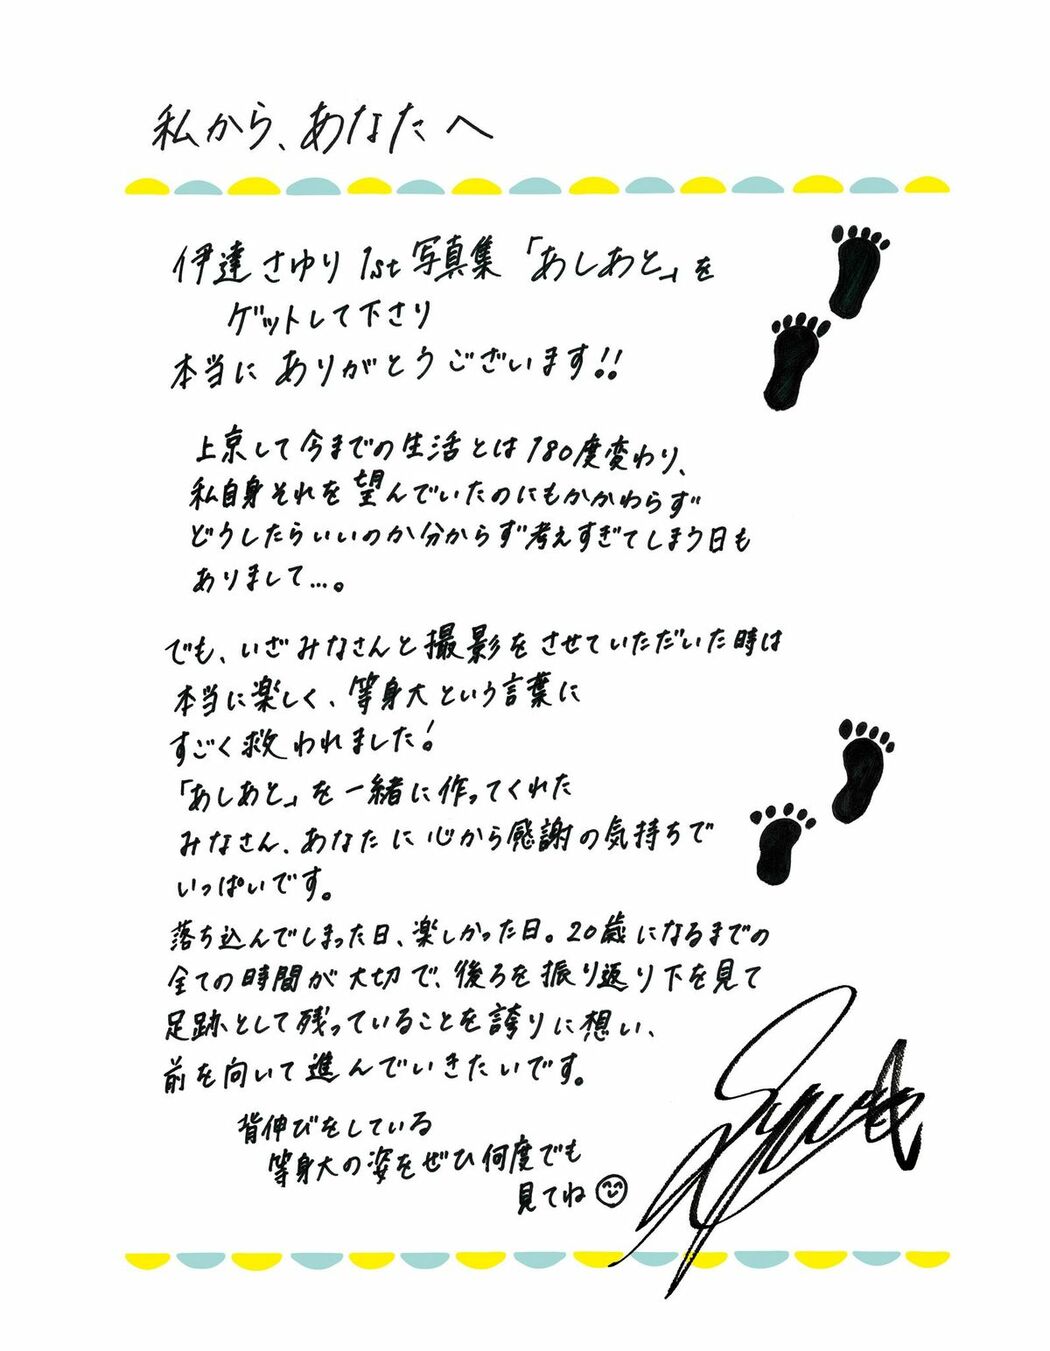 私から、あなたへ
伊達さゆり 1st写真集「あしあと」を
ゲットして下さり
本当に ありがとうございます!!
上京して今までの生活とは180度変わり、
私自身それを望んでいたのにもかかわらず
どうしたらいいのか分からず考えすぎてしまう日も
ありまして…。
でも、いざみなさんと撮影をさせていただいた時は
本当に楽しく、等身大という言葉に
すごく救われました!
「あしあと」を一緒に作ってくれた
みなさん、あなたに心から感謝の気持ちで
いっぱいです。
落ち込んでしまった日、楽しかった日。20歳になるまでの
全ての時間が大切で、後ろを振り返り下を見て
足跡として残っていることを誇りに想い、
前を向いて進んでいきたいです。
背伸びをしている
等身大の姿をぜひ何度でも
見てね